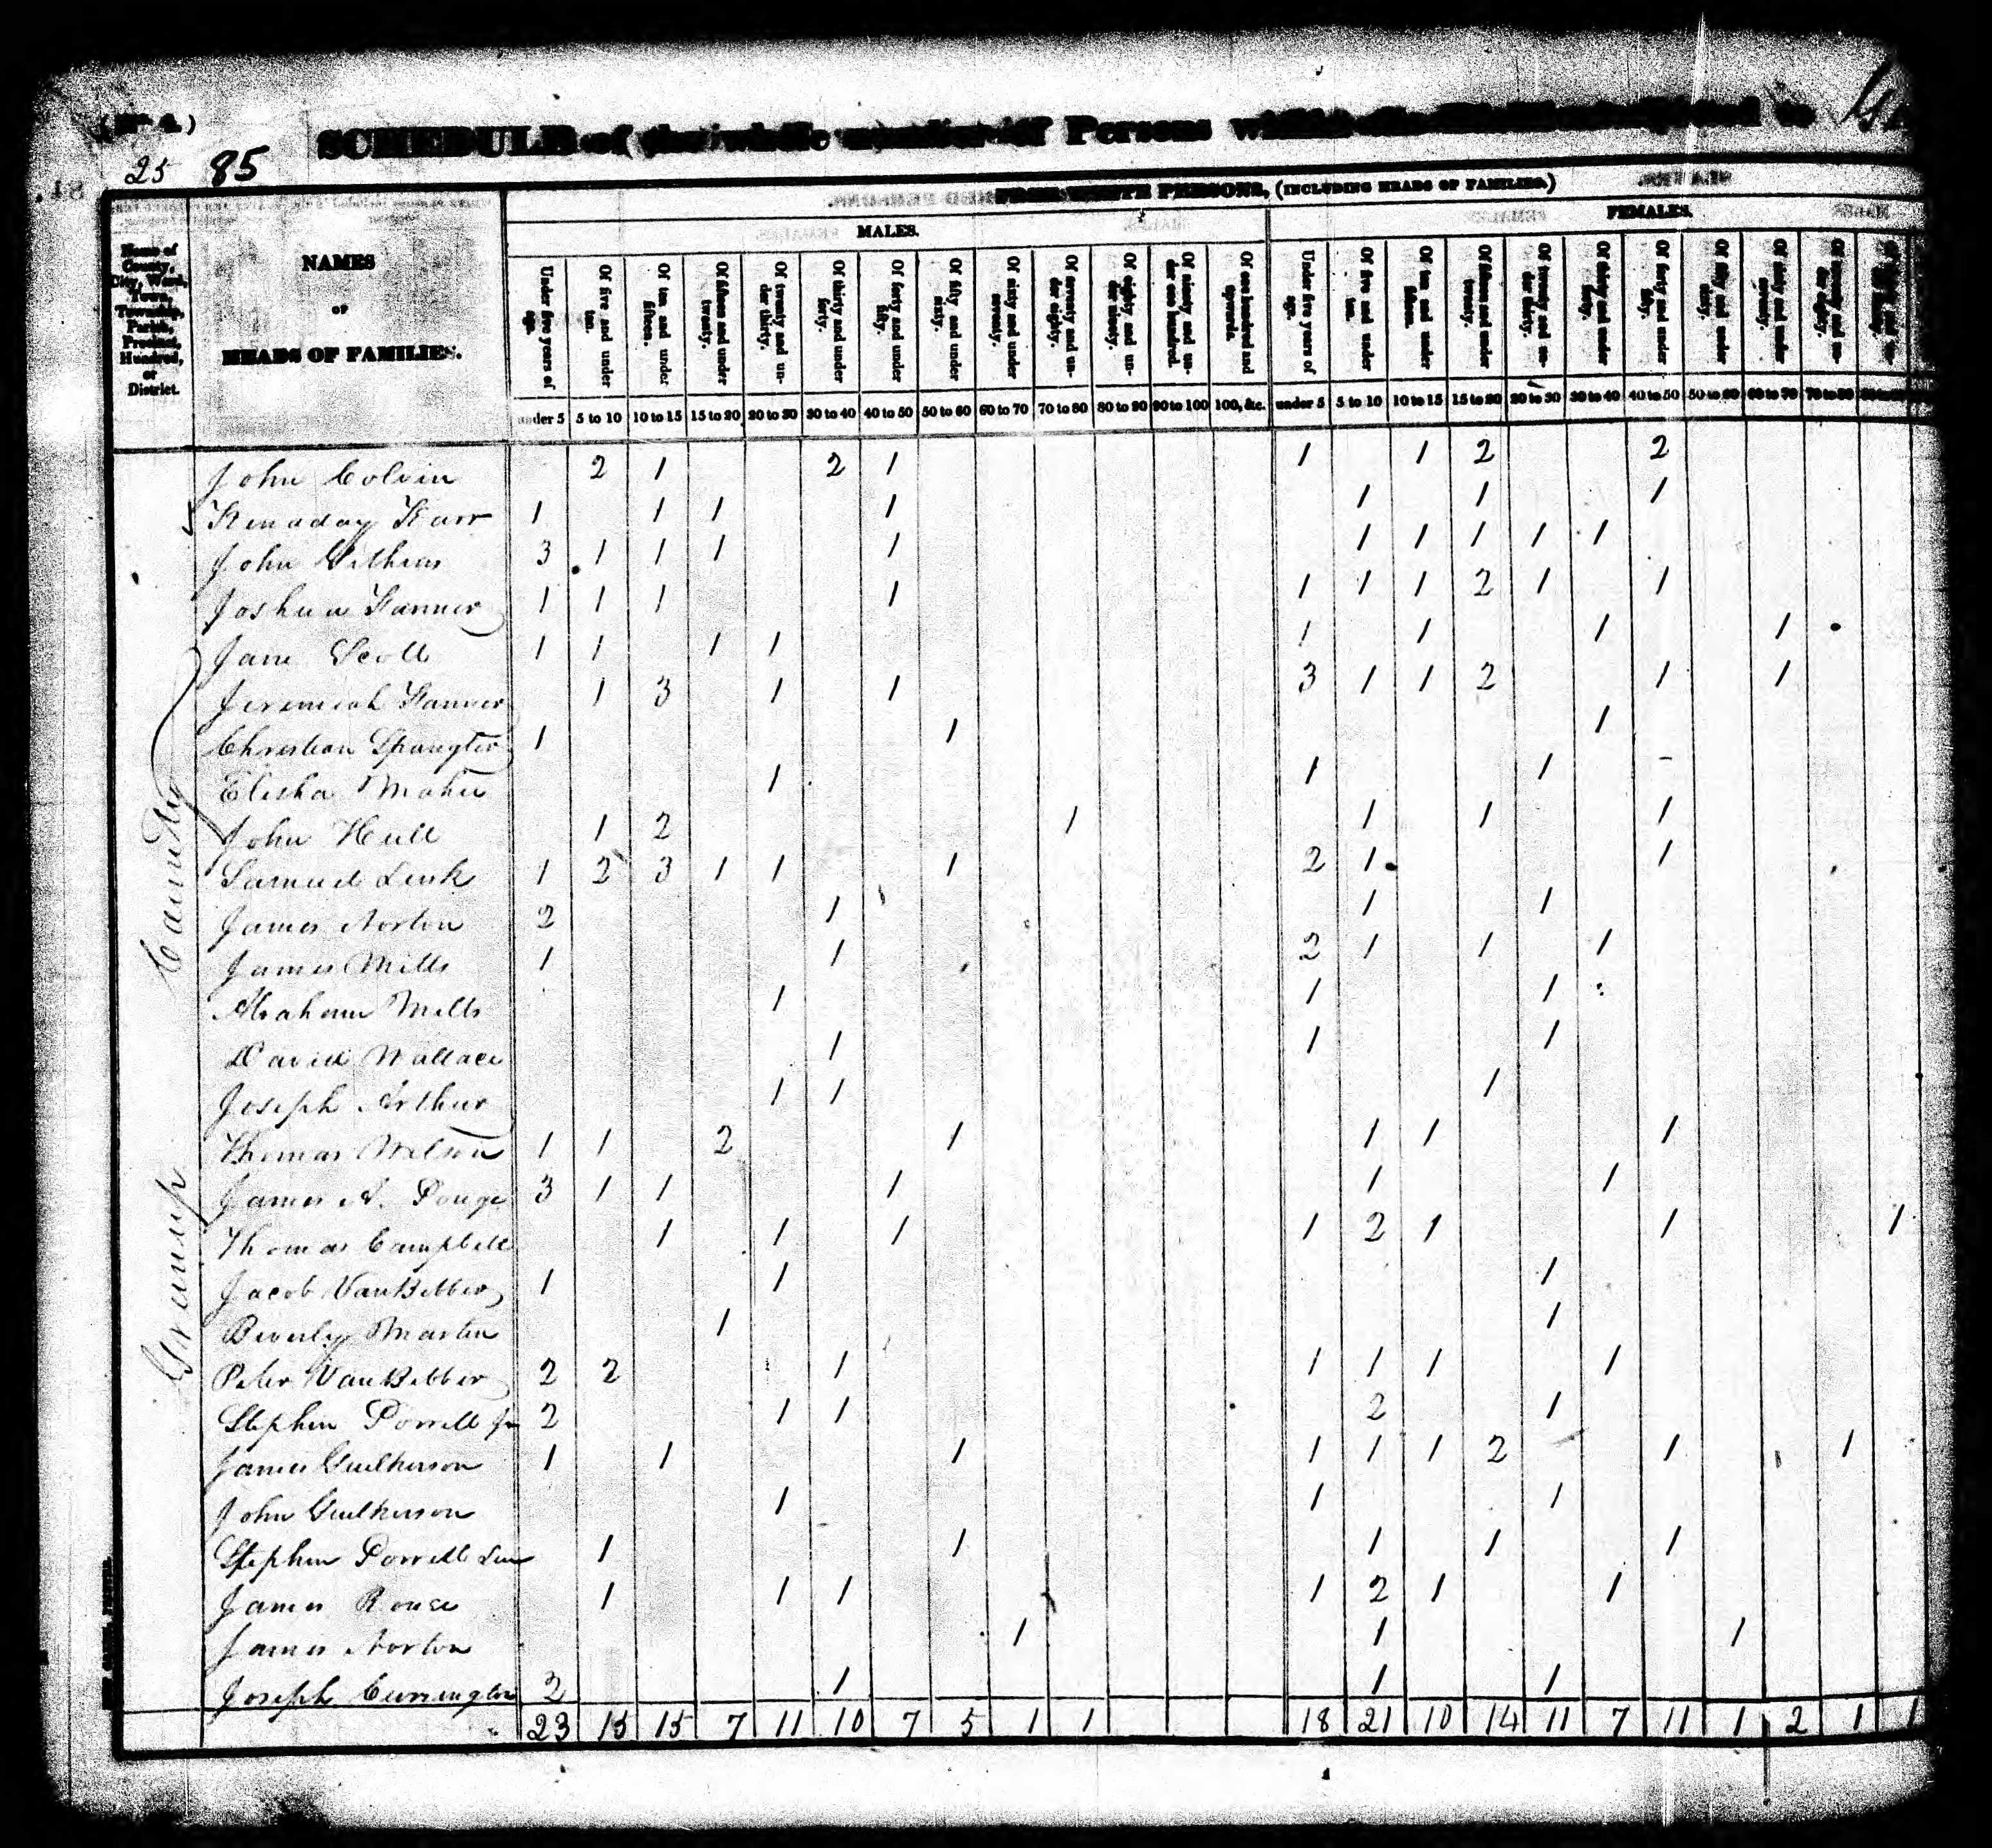 (No. 4.)
25 85
SCHEDULE of the whole number of Persons
FREE WHITE PERSONS, (INCLUDING HEADS OF FAMILIES.)
MALES. FEMALES.
Name of County, City, Ward, Town, Township, Parish, Precinct, Hundred, or District.
NAMES OF HEADS OF FAMILIES.
Under five years of age. Of five and under ten. Of ten and under fifteen. Of fifteen and under twenty. Of twenty and under thirty. Of thirty and under forty. Of forty and under fifty. Of fifty and under sixty. Of sixty and under seventy. Of seventy and under eighty. Of eighty and under ninety. Of ninety and under one hundred. Of one hundred and upwards. Under five years of age. Of five and under ten. Of ten and under fifteen. Of fifteen and under twenty. Of twenty and under thirty. Of thirty and under forty. Of forty and under fifty. Of fifty and under sixty. Of sixty and under seventy. Of seventy and under eighty.
under 5 5 to 10 10 to 15 15 to 20 20 to 30 30 to 40 40 to 50 50 to 60 60 to 70 70 to 80 80 to 90 90 to 100 100, &c. under 5 5 to 10 10 to 15 15 to 20 20 to 30 30 to 40 40 to 50 50 to 60 60 to 70 70 to 80
Greenup County
John Colvin 2 1 2 1 1 1 2 2
1 1 1 1 1 1 1
John 3 1 1 1 1 1 1 1 1 1
Joshua 1 1 1 1 1 1 1 2 1 1
Jane Scott 1 1 1 1 1 1 1 1
Jeremiah 1 3 1 1 3 1 1 2 1 1
Christian Spangler 1 1 1
Elisha 1 1 1
John Hull 1 2 1 1 1 1
Samuel Link 1 2 3 1 1 1 2 1 1
James Norton 2 1 1 1
James Mills 1 1 2 1 1 1
Abraham Mills 1 1 1
David Wallace 1 1 1
Joseph Arthur 1 1 1
Thomas Wilson 1 1 2 1 1 1 1
James A. 3 1 1 1 1 1
Thomas Campbell 1 1 1 1 2 1 1 1
Jacob VanBibber 1 1 1
Beverly Martin 1 1
Peter VanBibber 2 2 1 1 1 1 1
Stephen Porrell Jr 2 1 1 2 1
James Guilkerson 1 1 1 1 1 1 2 1 1
John Guilkerson 1 1 1
Stephen Porrell Sen 1 1 1 1 1
James Rouse 1 1 1 1 2 1 1
James Norton 1 1 1
Joseph Currington 2 1 1 1
23 15 15 7 11 10 7 5 1 1 18 21 10 14 11 7 11 1 2 1 1